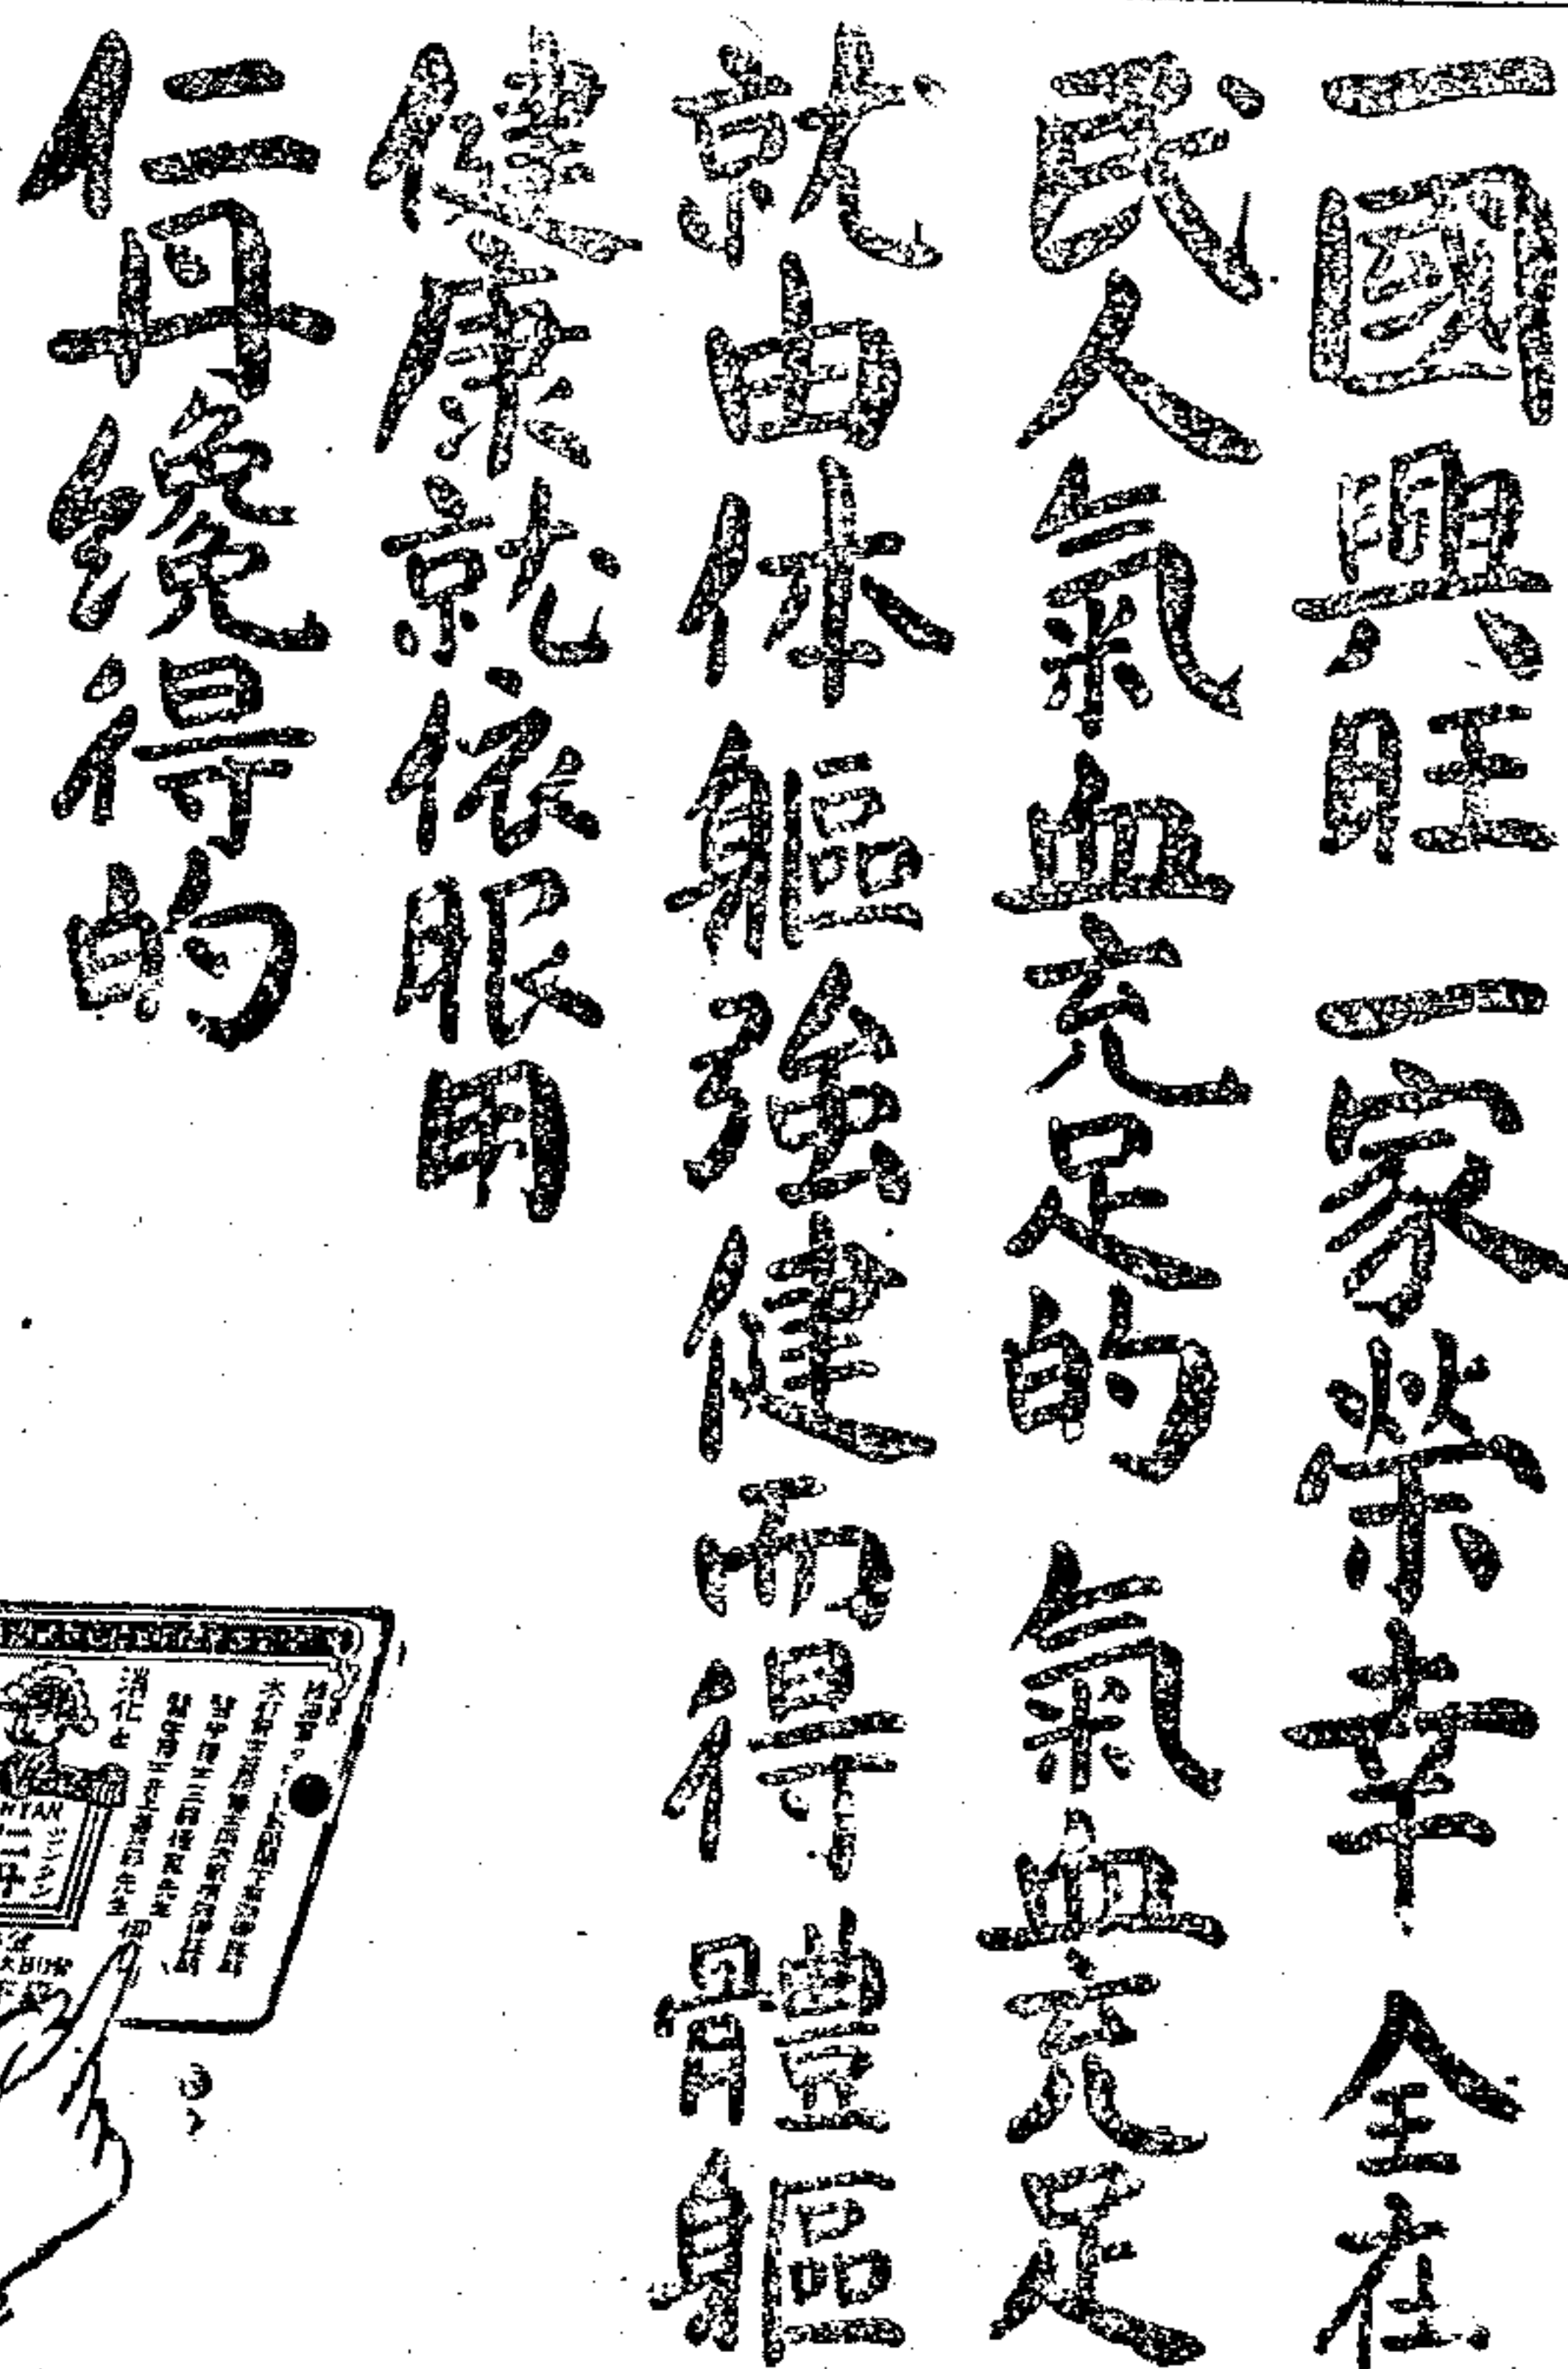 一國興旺 一家榮幸 全在
民人氣血充足的 氣血充足
就由体軀強健而得 體軀
健康就依眼用
仁丹纔得的